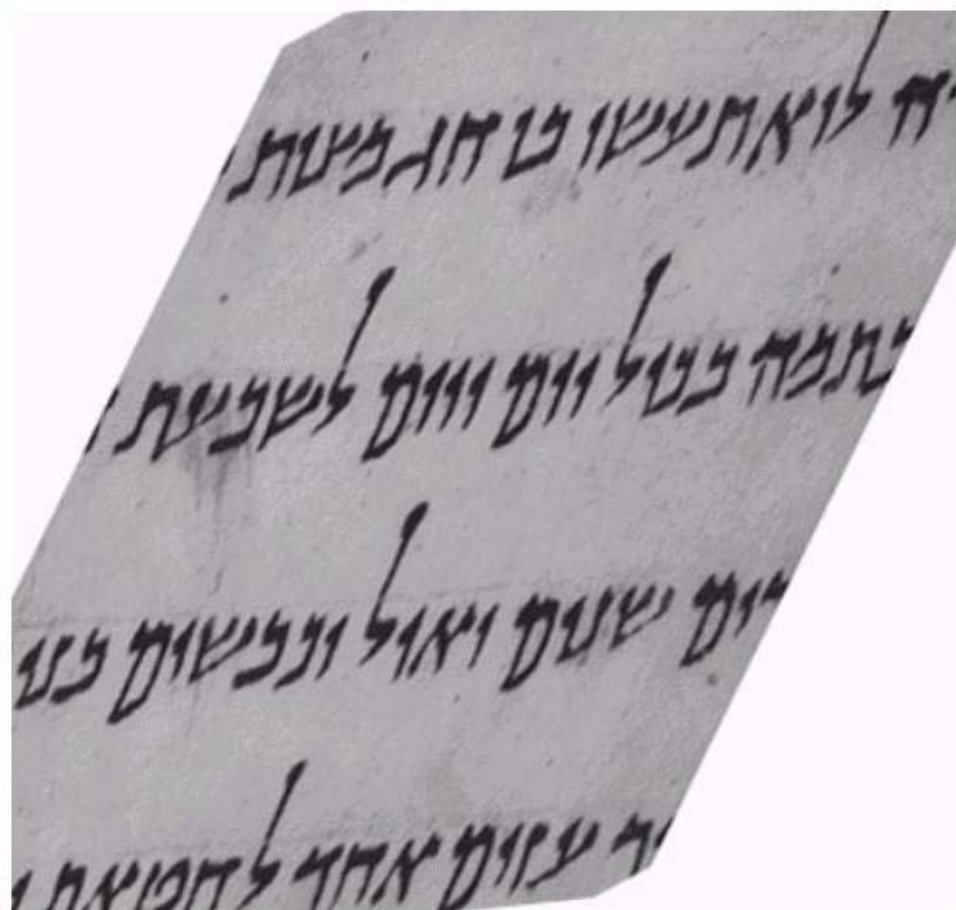 דה לוא תעשו בו חג מצות
בתמה בכול יום ויום לשבעת
רים שנים ואיל וכבשים בני
יר עזים אחד לחטאת